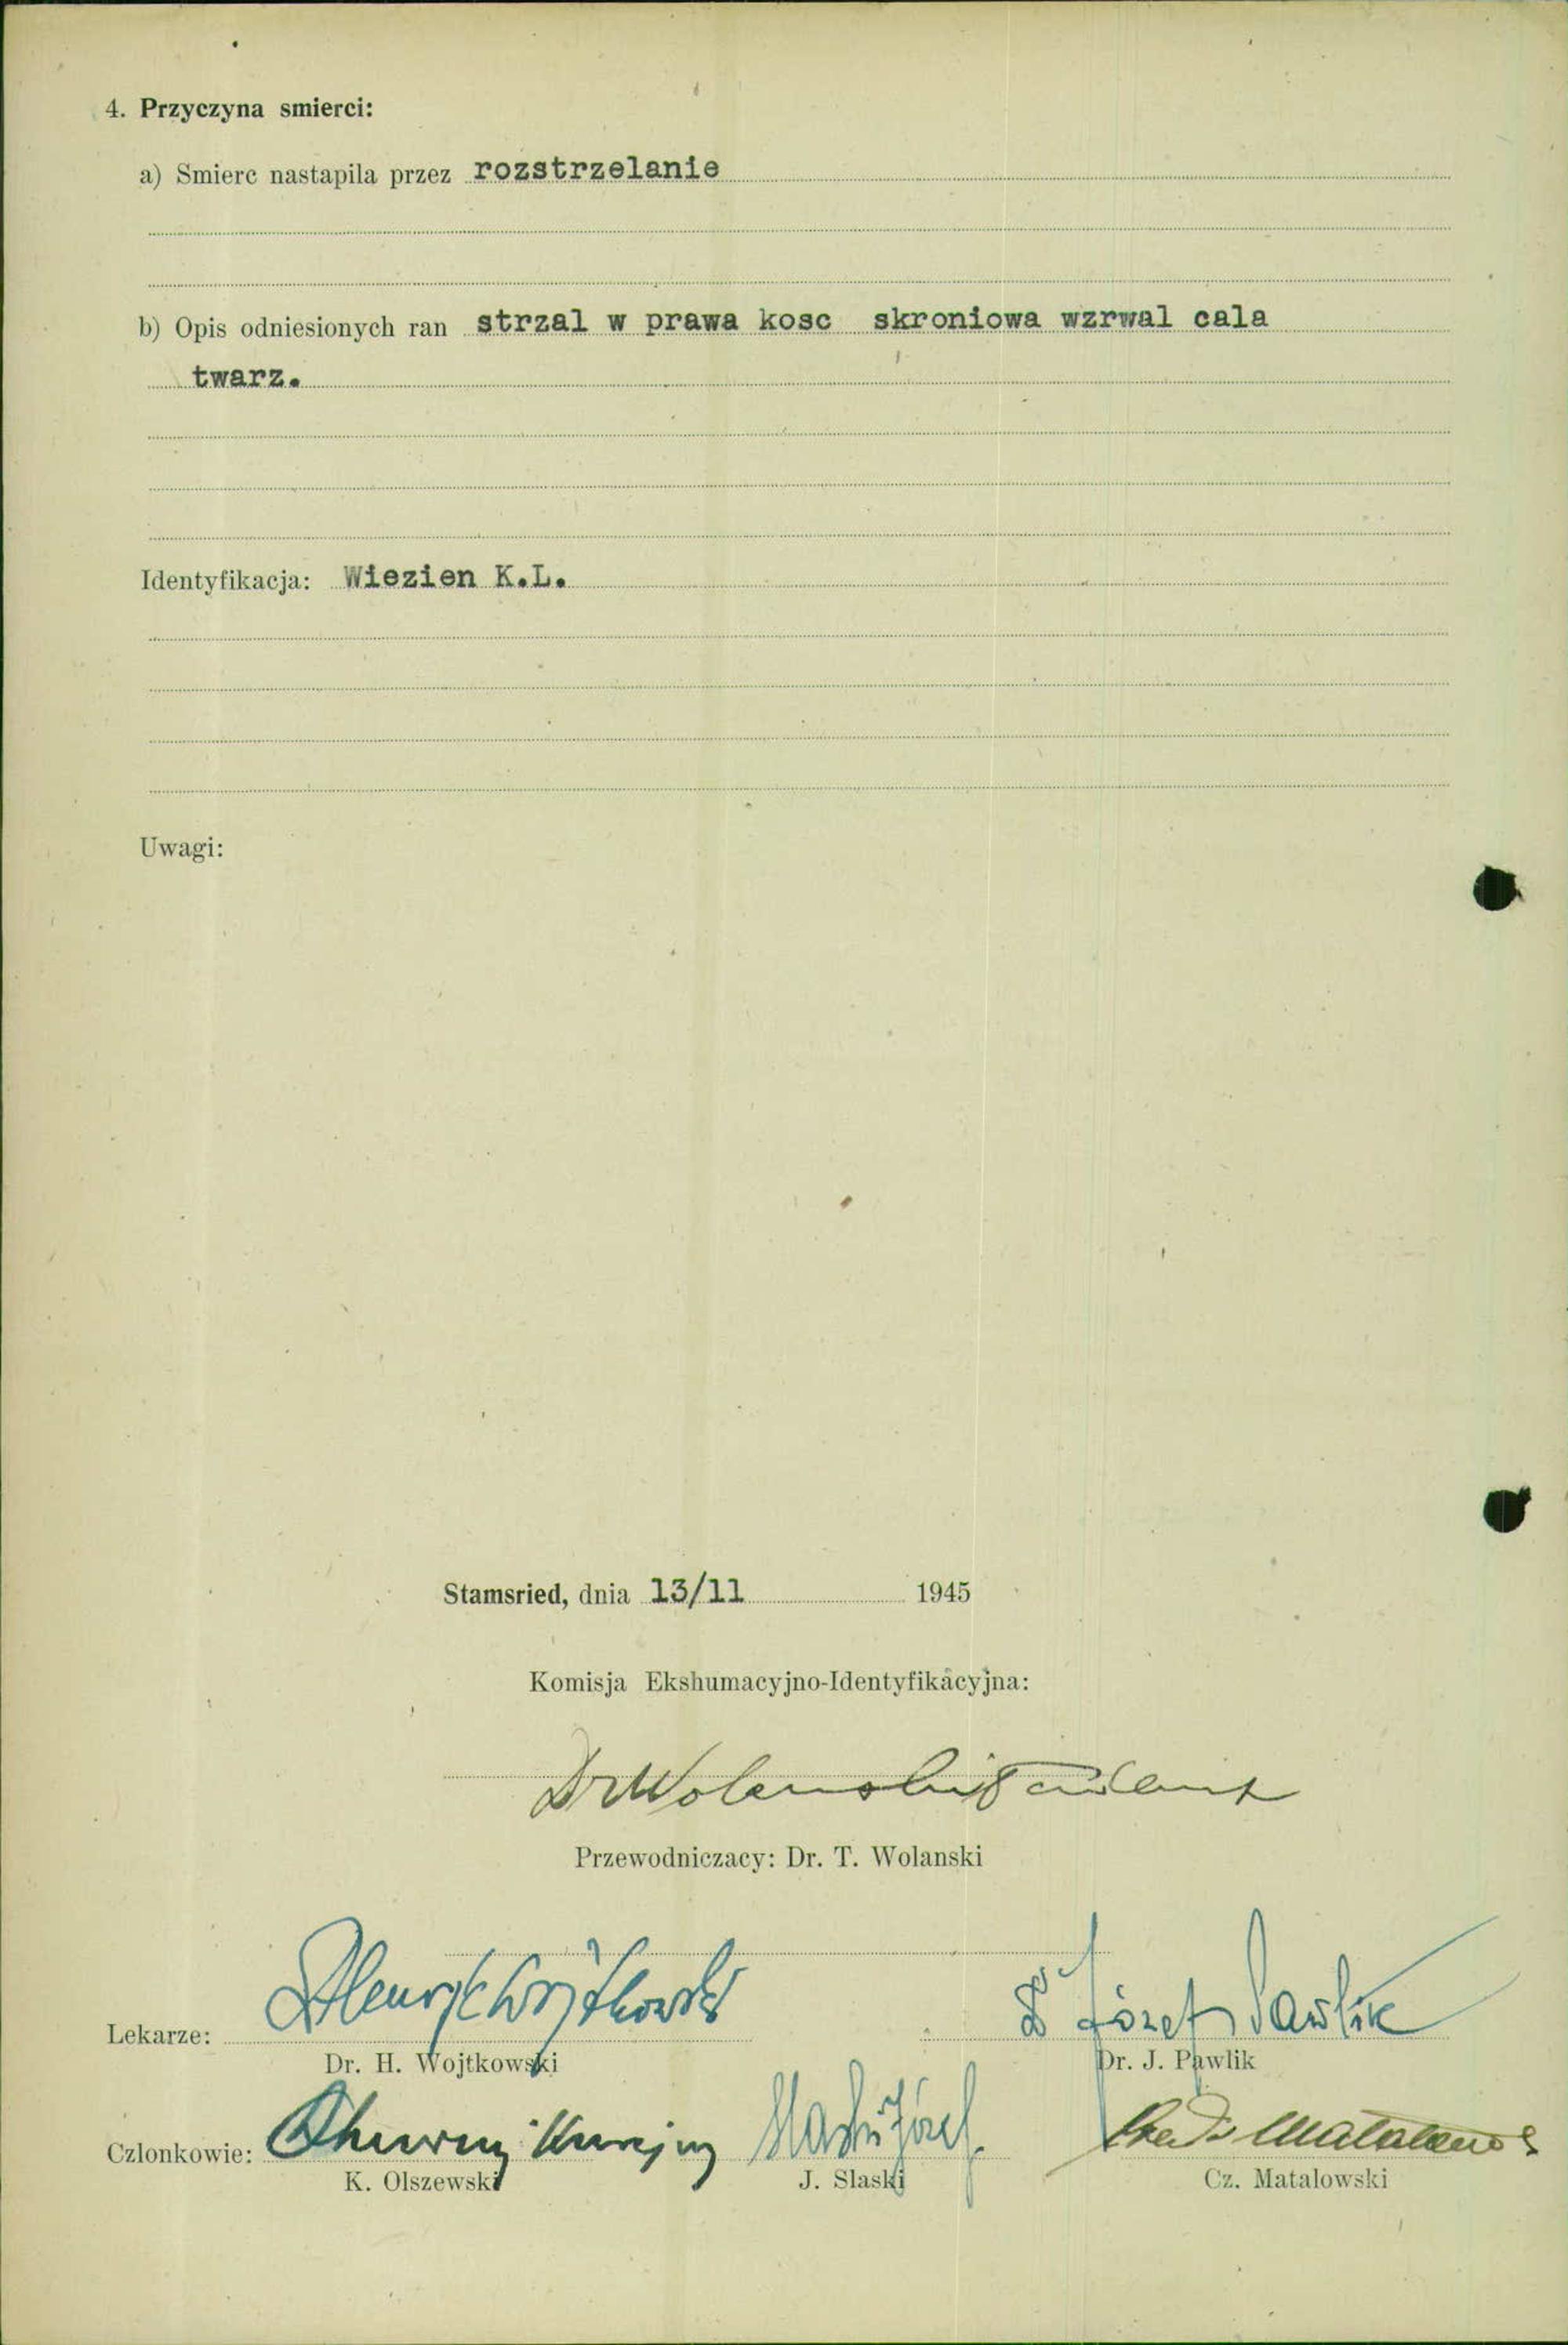 4. Przyczyna smierci:
a) Smierc nastapila przez rozstrzelanie
b) Opis odniesionych ran strzal w prawa kosc skroniowa wzrwal cala
twarz.
Identyfikacja: Wiezien K.L.
Uwagi:
Stamsried, dnia 13/11 1945
Komisja Ekshumacyjno-Identyfikacyjna:
Dr Wolanski
Przewodniczacy: Dr. T. Wolanski
Henryk Wojtkowski Dr Józef Pawlik
Lekarze:
Dr. H. Wojtkowski Dr. J. Pawlik
Slaski Józef
Czlonkowie:
K. Olszewski J. Slaski Cz. Matalowski